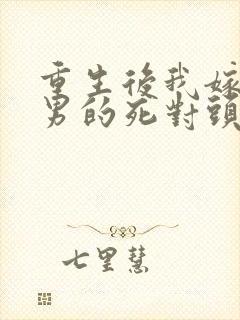 重生後我嫁
男的死對頭
七里慧